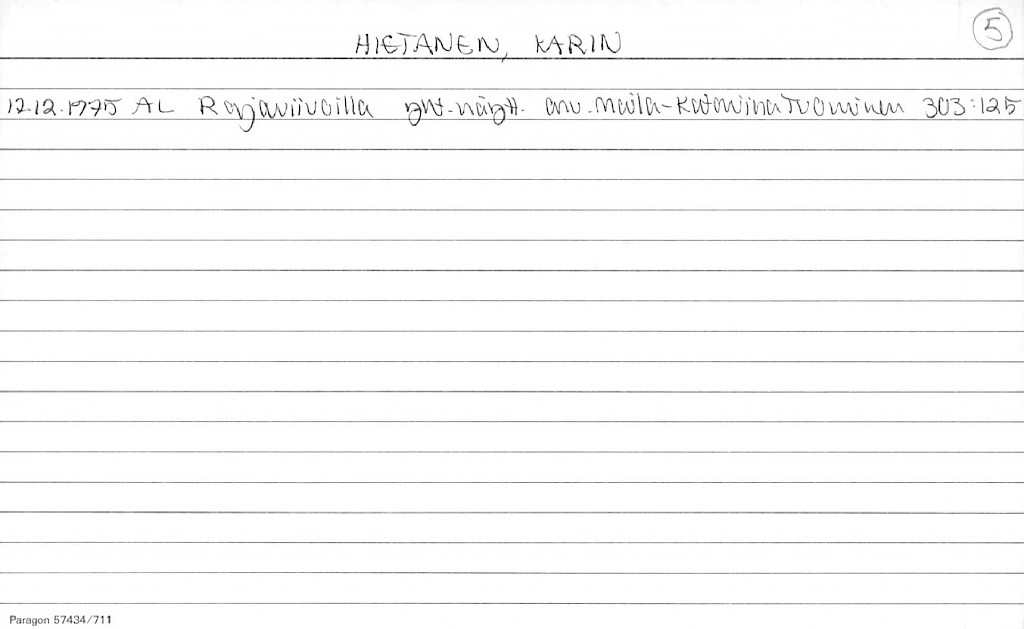 5
HIETANEN, KARIN
12.12.1975 AL Rajaviivoilla yht.näytt. arv. Maila-Katariina Tuominen 303:125
Paragon 57434/711